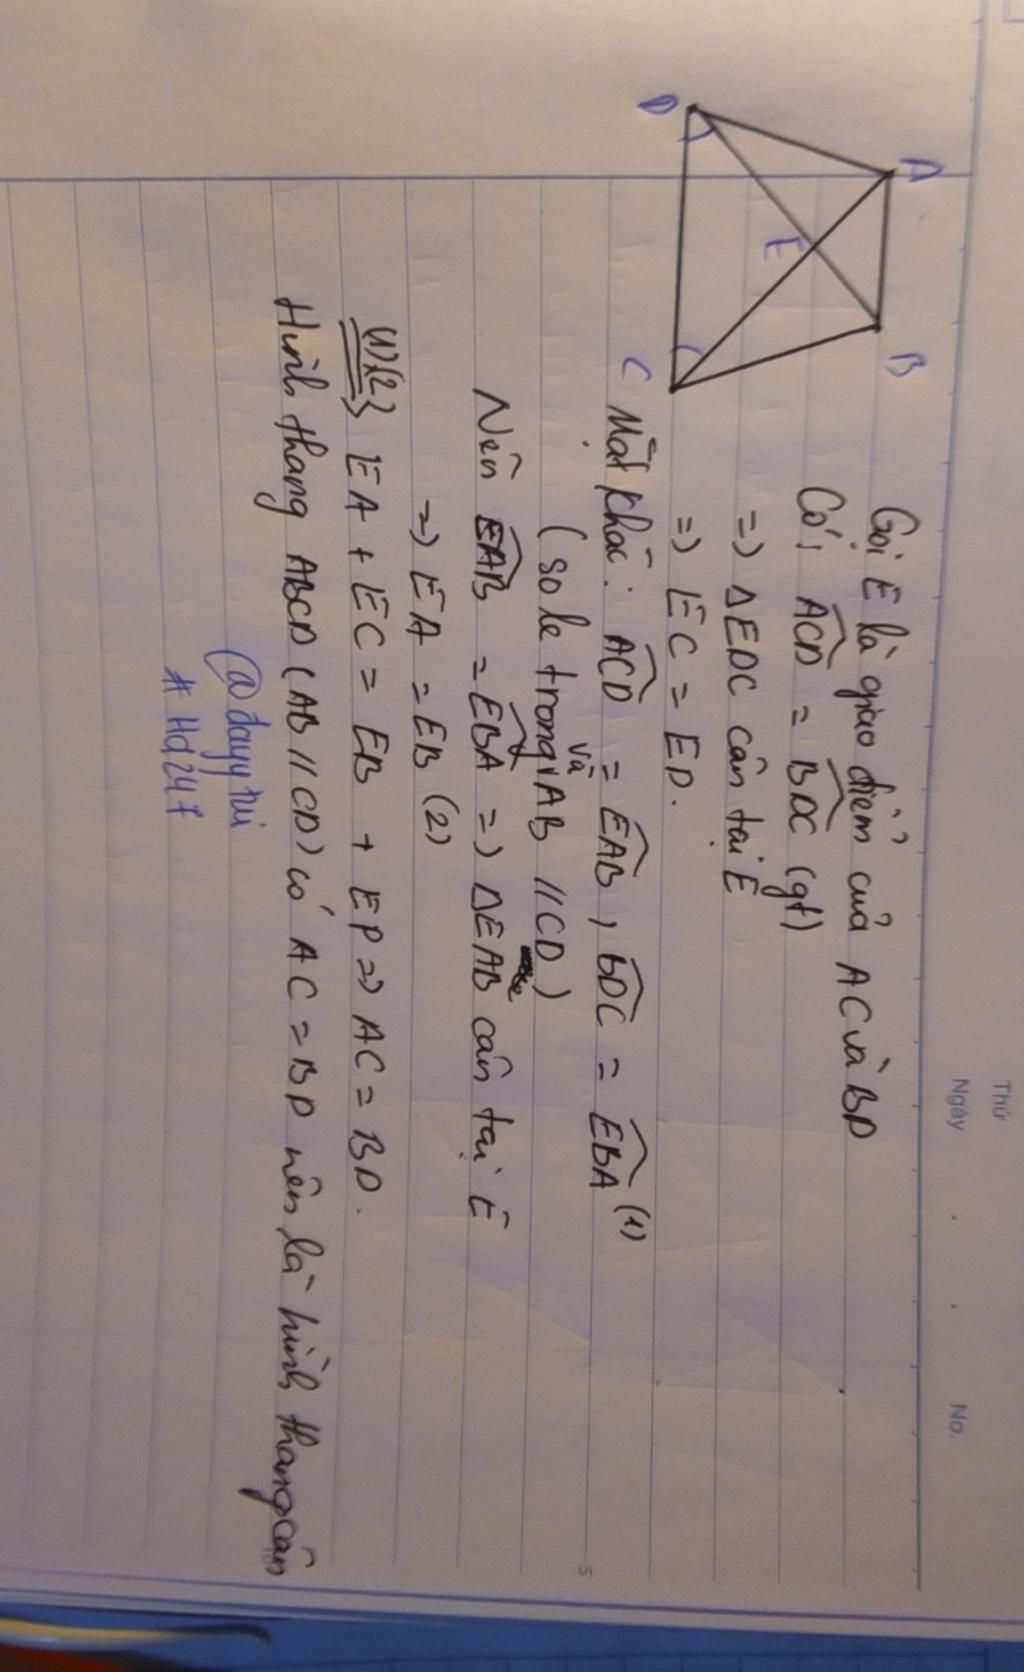 Thứ
Ngày . . No.
A B
E
D C
Gọi E là giao điểm của AC và BD
Có: ACD = BDC (gt)
=> ΔEDC cân tại E
=> EC = ED.
Mặt khác: ACD = EAB, BDC = EBA (1)
(so le trong và AB // CD)
Nên EAB = EBA => ΔEAB cân tại E
=> EA = EB (2)
(1)(2) EA + EC = EB + ED => AC = BD.
Hình thang ABCD (AB // CD) có AC = BD nên là hình thang cân
@dayy nui
# Hd247
5